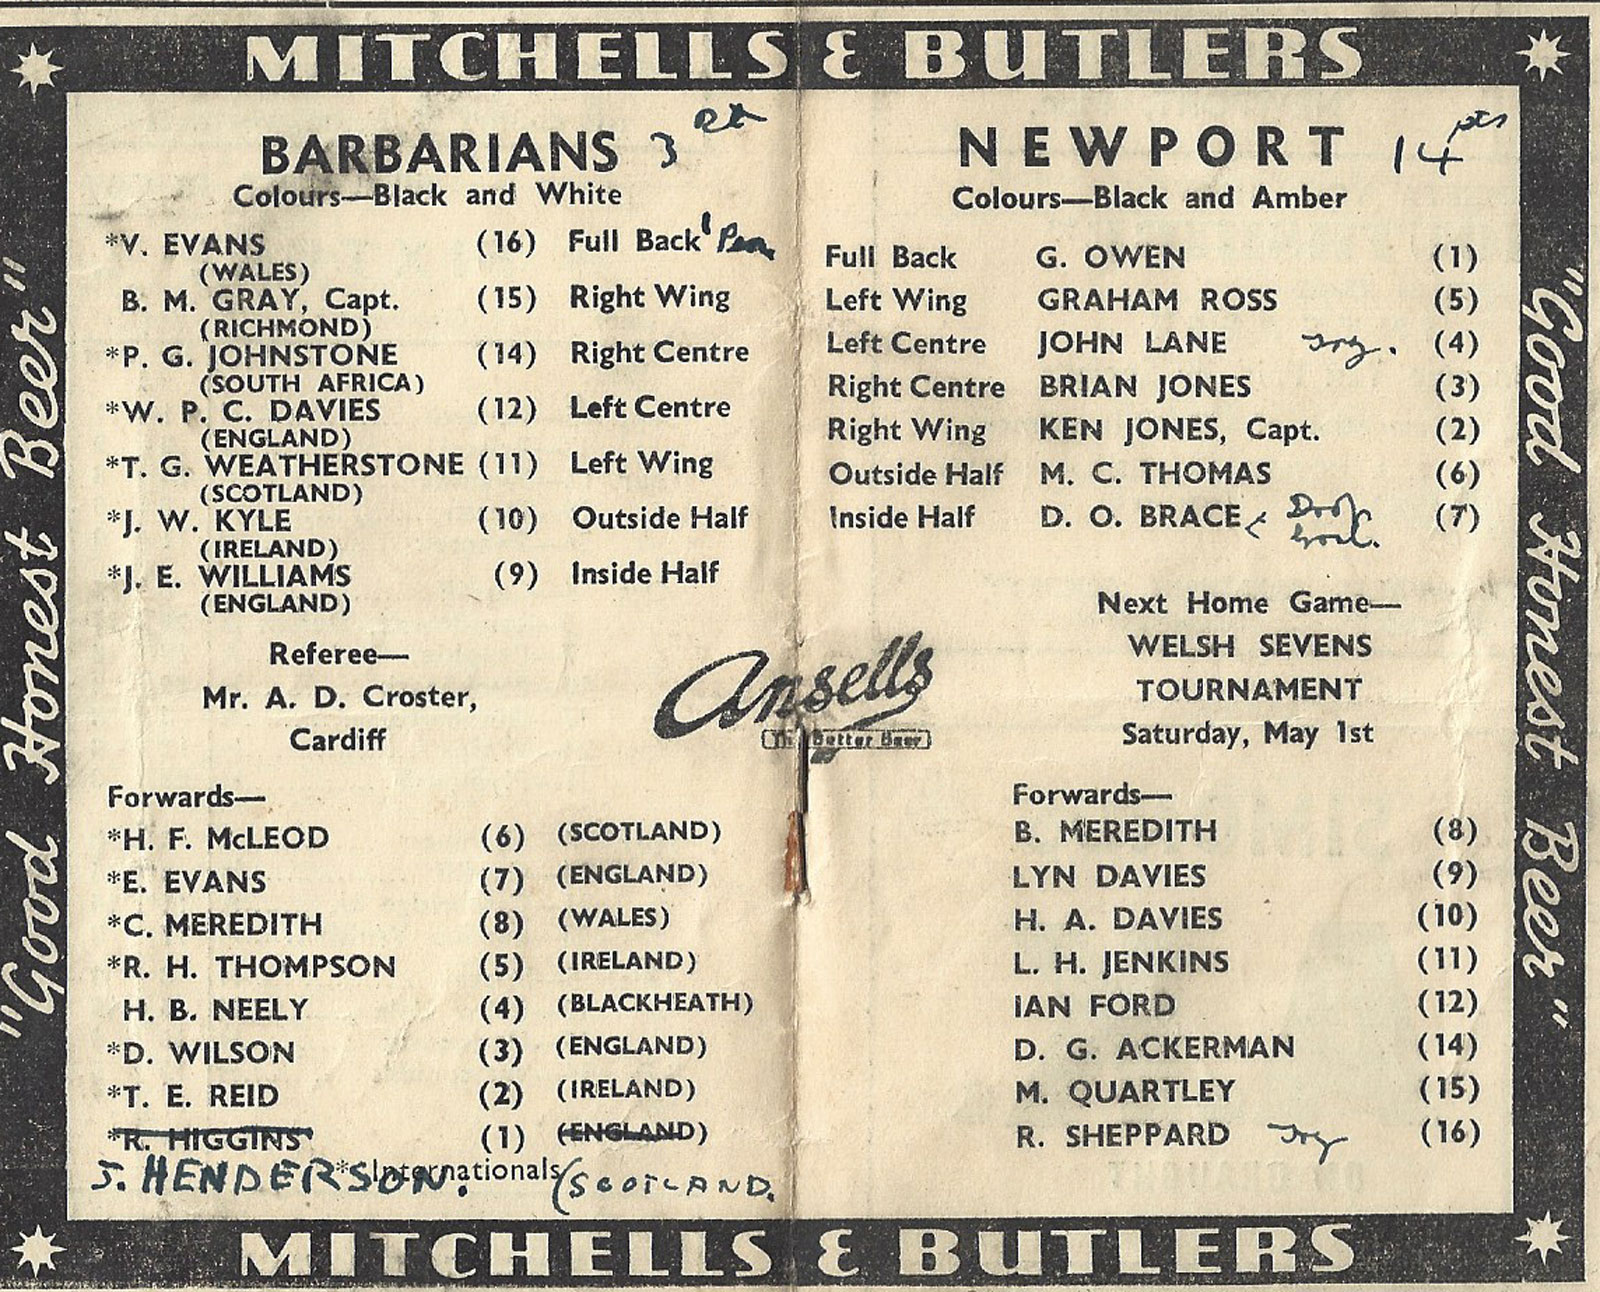 MITCHELLS & BUTLERS
"Good Honest Beer"
BARBARIANS 3
Colours—Black and White
*V. EVANS (16) Full Back 1 Pen
(WALES)
B. M. GRAY, Capt. (15) Right Wing
(RICHMOND)
*P. G. JOHNSTONE (14) Right Centre
(SOUTH AFRICA)
*W. P. C. DAVIES (12) Left Centre
(ENGLAND)
*T. G. WEATHERSTONE (11) Left Wing
(SCOTLAND)
*J. W. KYLE (10) Outside Half
(IRELAND)
*J. E. WILLIAMS (9) Inside Half
(ENGLAND)
Referee—
Mr. A. D. Croster,
Cardiff
Forwards—
*H. F. McLEOD (6) (SCOTLAND)
*E. EVANS (7) (ENGLAND)
*C. MEREDITH (8) (WALES)
*R. H. THOMPSON (5) (IRELAND)
H. B. NEELY (4) (BLACKHEATH)
*D. WILSON (3) (ENGLAND)
*T. E. REID (2) (IRELAND)
*R. HIGGINS (1) (ENGLAND)
*Internationals
J. HENDERSON. (SCOTLAND.
Ansells
The Better Beer
NEWPORT 14 pts
Colours—Black and Amber
Full Back G. OWEN (1)
Left Wing GRAHAM ROSS (5)
Left Centre JOHN LANE Try. (4)
Right Centre BRIAN JONES (3)
Right Wing KEN JONES, Capt. (2)
Outside Half M. C. THOMAS (6)
Inside Half D. O. BRACE Drop Goal. (7)
Next Home Game—
WELSH SEVENS
TOURNAMENT
Saturday, May 1st
Forwards—
B. MEREDITH (8)
LYN DAVIES (9)
H. A. DAVIES (10)
L. H. JENKINS (11)
IAN FORD (12)
D. G. ACKERMAN (14)
M. QUARTLEY (15)
R. SHEPPARD Try (16)
"Good Honest Beer"
MITCHELLS & BUTLERS